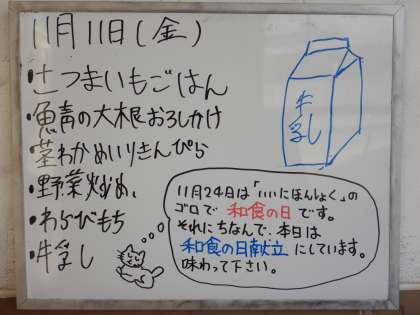 11月11日(金)
・さつまいもごはん
・魚青の大根おろしかけ
・茎わかめいりきんぴら
・野菜炒め
・わらびもち
・牛乳
牛乳
11月24日は「いいにほんしょく」の
ゴロで和食の日です。
それにちなんで、本日は
和食の日献立にしています。
味わって下さい。